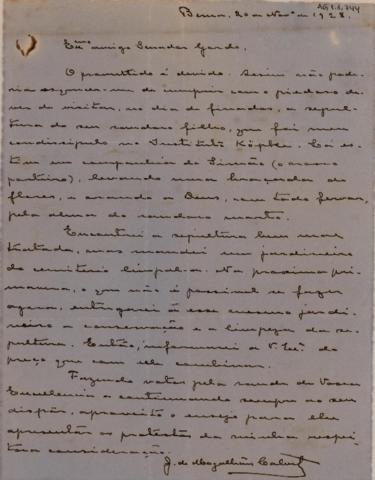 AG1.1.744
Berna, 20 de Novº de 1928.
Exmo amigo Senador Gordo,
O promettido é devido. Assim não pode-
ria esquecer-me de cumprir com o piedoso de-
ver de visitar, no dia de finados, a sepul-
tura do seu saudoso filho, que foi meu
condiscipulo no Instituto Köpke. Lá es-
tive em companhia do Simão (o nosso
porteiro), levando uma braçada de
flores, e orando a Deus, com todo fervor,
pela alma do saudoso morto.
Encontrei a sepultura bem mal
tratada, mas mandei um jardineiro
do cemiterio limpal-a. Na proxima pri-
mavera, o que não é possivel se fazer
agora, entregarei á esse mesmo jardi-
neiro a conservação e a limpeza da se-
pultura. Então, informarei a V. Exª. do
preço que com elle combinar.
Fazendo votos pela saude de Vossa
Excellencia e continuando sempre ao seu
dispôr, aproveito o ensejo para lhe
apresentar os protestos da minha respei-
tosa consideração.
J. de Magalhães Calvet